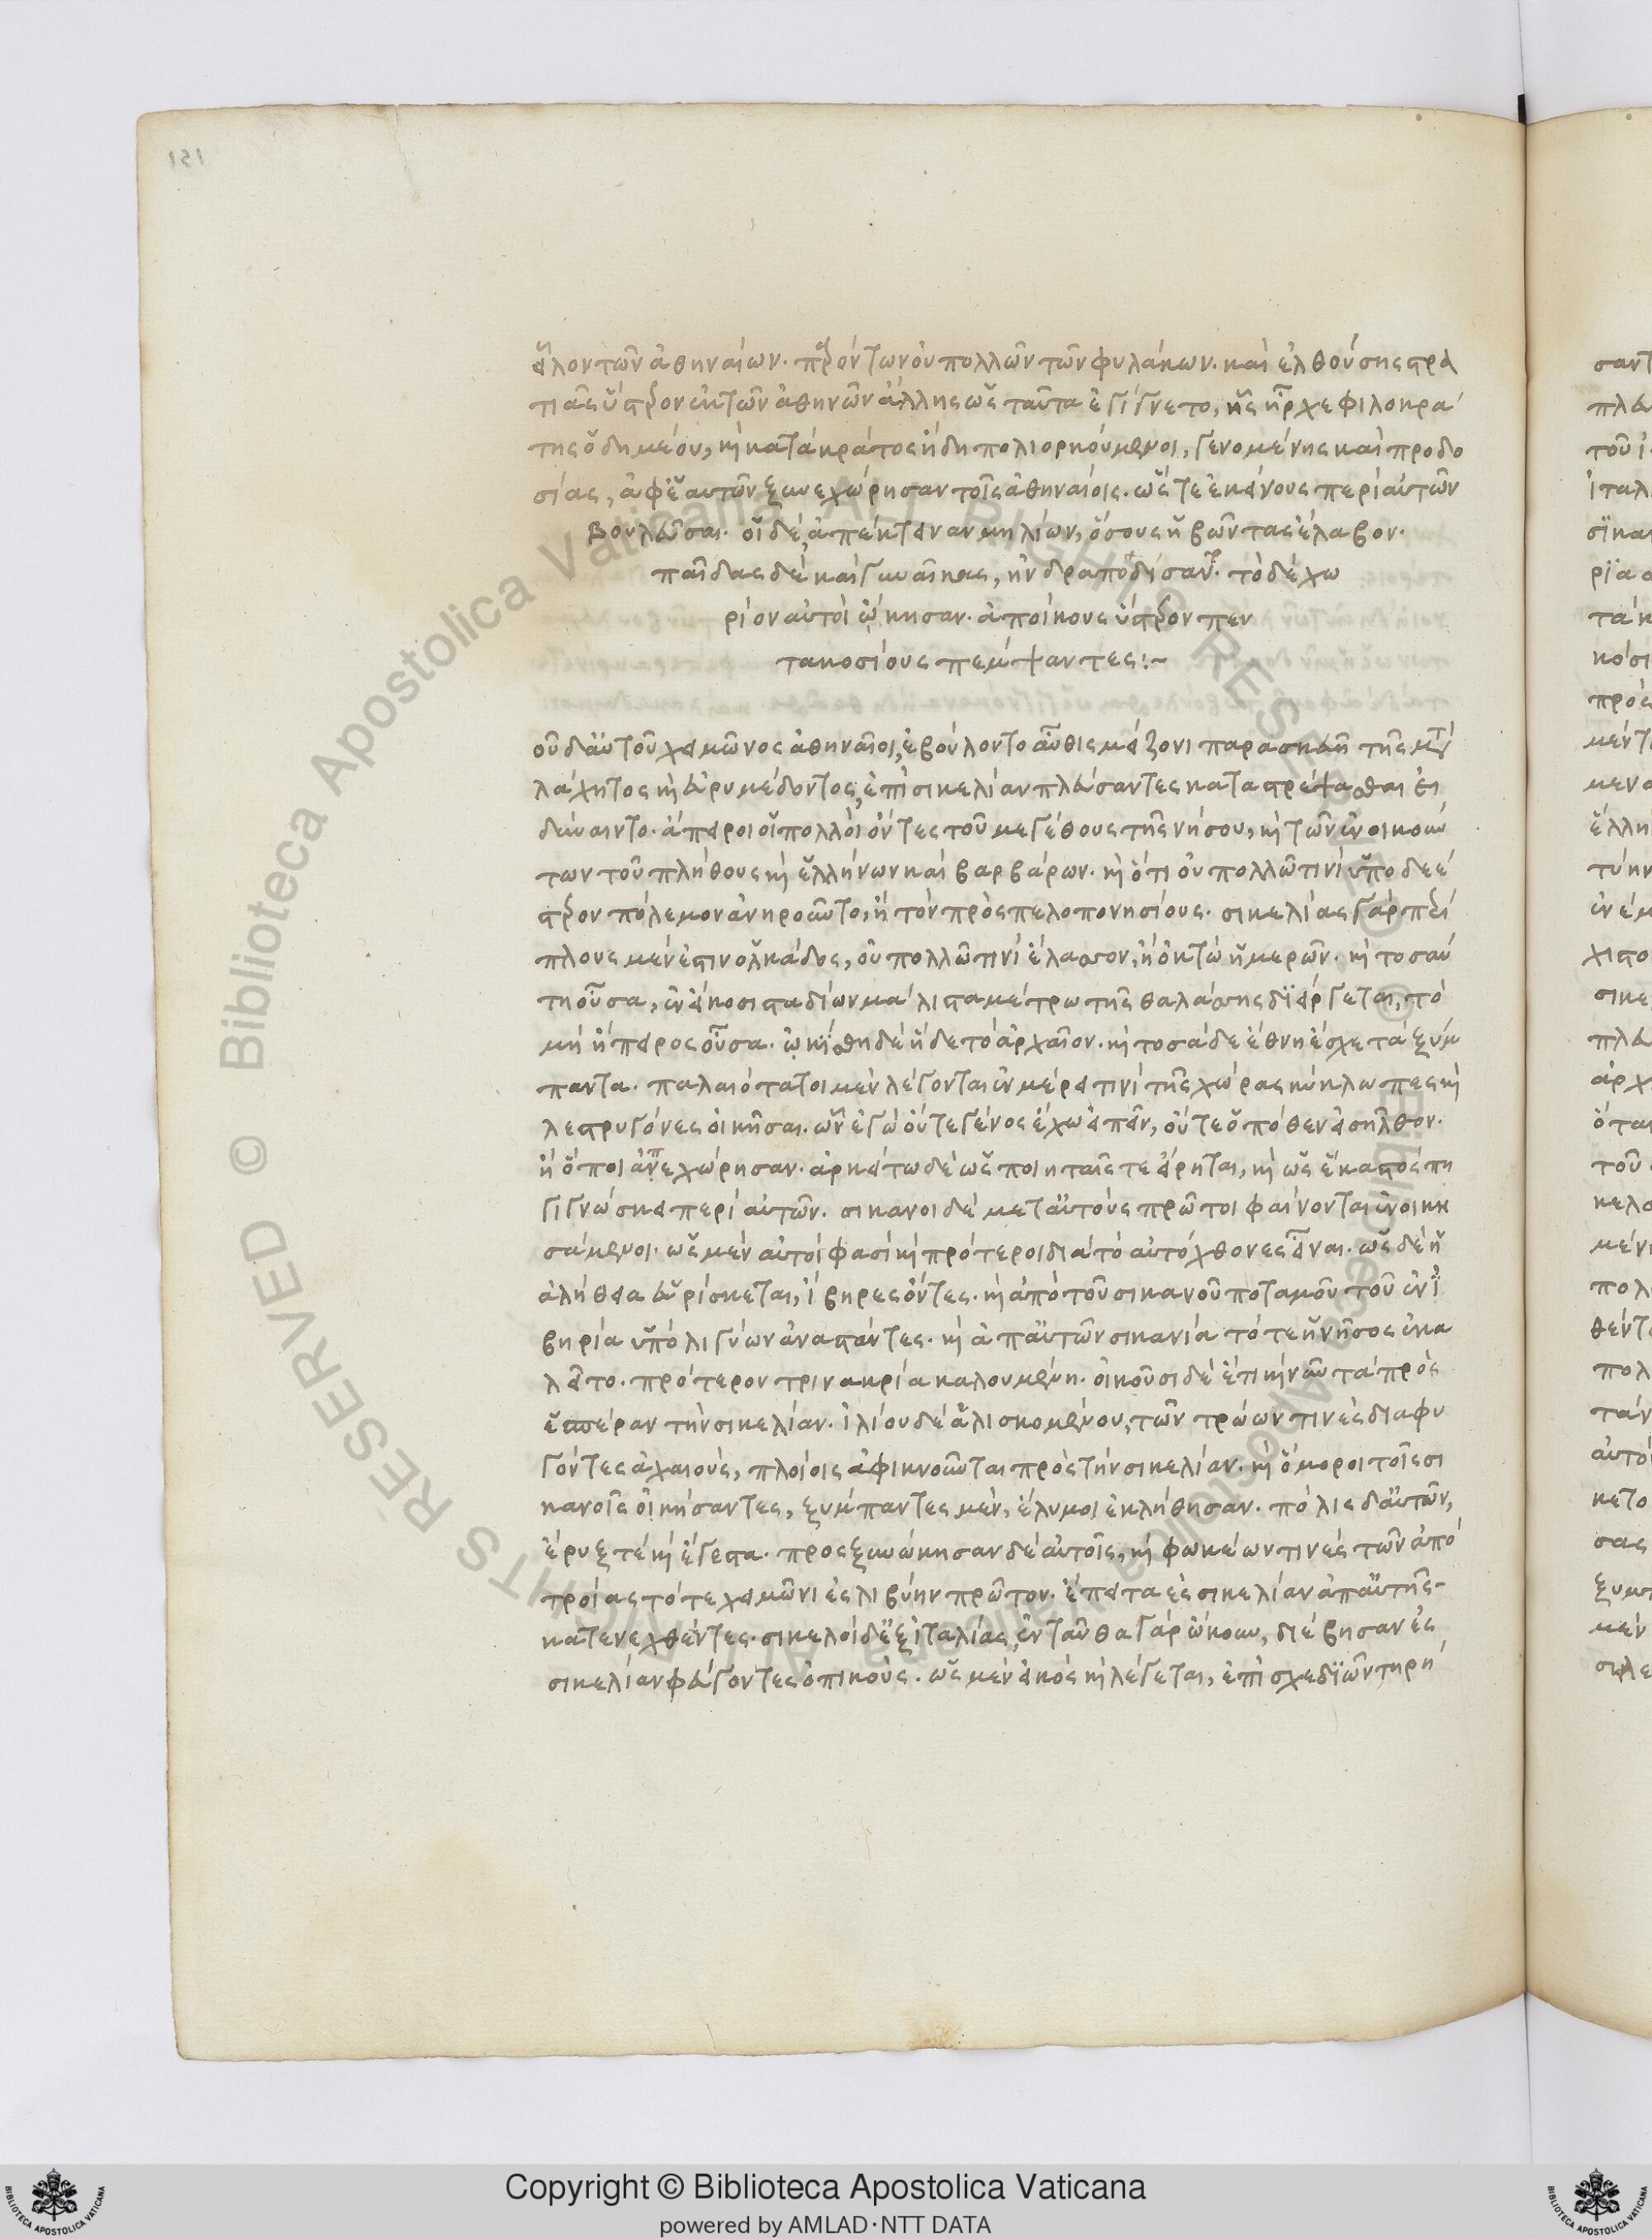 151
εἷλον τῶν ἀθηναίων· παρόντων οὐ πολλῶν τῶν φυλάκων. καὶ ἐλθούσης στρα
τιᾶς ὕστερον ἐκ τῶν ἀθηνῶν ἄλλης ὡς ταῦτα ἐγίγνετο, ἧς ἦρχε φιλοκρά
της ὁ δημέου, καὶ κατὰ κράτος ἤδη πολιορκούμενοι, γενομένης καὶ προδο
σίας, ἀφ' ἑαυτῶν ξυνεχώρησαν τοῖς ἀθηναίοις. ὥστε ἐκείνους περὶ αὐτῶν
βουλεῦσαι. οἱ δὲ, ἀπέκτειναν μηλίων, ὅσους ἡβῶντας ἔλαβον.
παῖδας δὲ καὶ γυναῖκας, ἠνδραπόδισαν. τὸ δὲ χω
ρίον αὐτοὶ ᾤκησαν. ἀποίκους ὕστερον πεν
τακοσίους πέμψαντες:~
οῦ δ' αὐτοῦ χειμῶνος ἀθηναῖοι, ἐβούλοντο αὖθις μείζονι παρασκευῇ τῆς μετὰ
λάχητος καὶ εὐρυμέδοντος, ἐπὶ σικελίαν πλεύσαντες καταστρέψασθαι εἰ
δύναιντο. ἄπειροι οἱ πολλοὶ ὄντες τοῦ μεγέθους τῆς νήσου, καὶ τῶν ἐνοικούν
των τοῦ πλήθους καὶ ἑλλήνων καὶ βαρβάρων. καὶ ὅτι οὐ πολλῶ τινὶ ὑποδεέ
στερον πόλεμον ἀνηροῦντο, ἢ τὸν πρὸς πελοπονησίους. σικελίας γὰρ περί
πλους μὲν ἐστιν ὁλκάδος, οὐ πολλῶ τινὶ ἔλασσον, ἢ ὀκτὼ ἡμερῶν. καὶ τοσαύ
τη οὖσα, ἐν εἴκοσι σταδίων μάλιστα μέτρω τῆς θαλάσσης διείργεται, τὸ
μὴ ἤπειρος οὖσα. ᾠκίσθη δὲ ἥδε τὸ ἀρχαῖον. καὶ τοσάδε ἔθνη ἔσχε τὰ ξύμ
παντα. παλαιότατοι μὲν λέγονται ἐν μέρει τινὶ τῆς χώρας κύκλωπες καὶ
λεστρυγόνες οἰκῆσαι. ὧν ἐγὼ οὔτε γένος ἔχω εἰπεῖν, οὔτε ὁπόθεν εἰσῆλθον.
ἢ ὅποι ἀπεχώρησαν. ἀρκείτω δὲ ὡς ποιηταῖς τε εἴρηται, καὶ ὡς ἕκαστός πη
γιγνώσκει περὶ αὐτῶν. σικανοὶ δὲ μετ' αὐτοὺς πρῶτοι φαίνονται ἐνοικη
σάμενοι. ὡς μὲν αὐτοί φασι καὶ πρότεροι διὰ τὸ αὐτόχθονες εἶναι. ὡς δὲ ἡ
ἀλήθεια εὑρίσκεται, ἴβηρες ὄντες. καὶ ἀπὸ τοῦ σικανοῦ ποταμοῦ τοῦ ἐν ἰ
βηρία ὑπὸ λιγύων ἀναστάντες. καὶ ἀπ' αὐτῶν σικανία τότε ἡ νῆσος ἐκα
λεῖτο. πρότερον τρινακρία καλουμένη. οἰκοῦσι δὲ ἔτι καὶ νῦν τὰ πρὸς
ἑσπέραν τὴν σικελίαν. ἰλίου δὲ ἁλισκομένου, τῶν τρώων τινὲς διαφυ
γόντες ἀχαιοὺς, πλοίοις ἀφικνοῦνται πρὸς τὴν σικελίαν. καὶ ὅμοροι τοῖς σι
κανοῖς οἰκήσαντες, ξύμπαντες μὲν, ἔλυμοι ἐκλήθησαν. πόλις δ' αὐτῶν,
ἔρυξ τὲ καὶ ἔγεστα. προσξυνώκησαν δὲ αὐτοῖς, καὶ φωκέων τινὲς τῶν ἀπὸ
τροίας τότε χειμῶνι ἐς λιβύην πρῶτον. ἔπειτα ἐς σικελίαν ἀπ' αὐτῆς
κατενεχθέντες. σικελοὶ δ' ἐξ ἰταλίας, ἐνταῦθα γὰρ ᾤκουν, διέβησαν ἐς
σικελίαν φεύγοντες ὀπικοὺς. ὡς μὲν εἰκὸς καὶ λέγεται, ἐπὶ σχεδιῶν τηρή
Copyright © Biblioteca Apostolica Vaticana
powered by AMLAD·NTT DATA